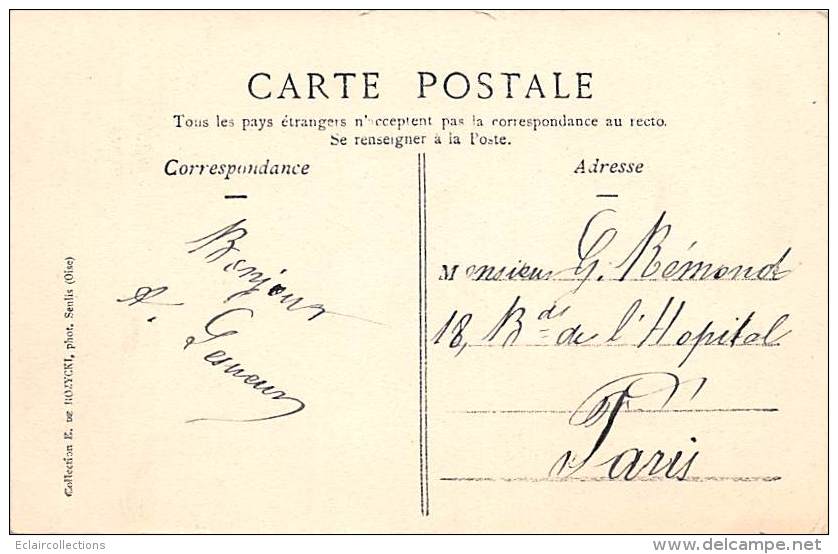 CARTE POSTALE
Tous les pays étrangers n'acceptent pas la correspondance au recto.
Se renseigner à la Poste.
Correspondance
Adresse
Bonjour
A.
Monsieur G. Rémond
18, Bds de l'Hopital
Paris
Collection E. DE ROZYCKI, phot. Senlis (Oise)
Eclaircollections
delcampe.net